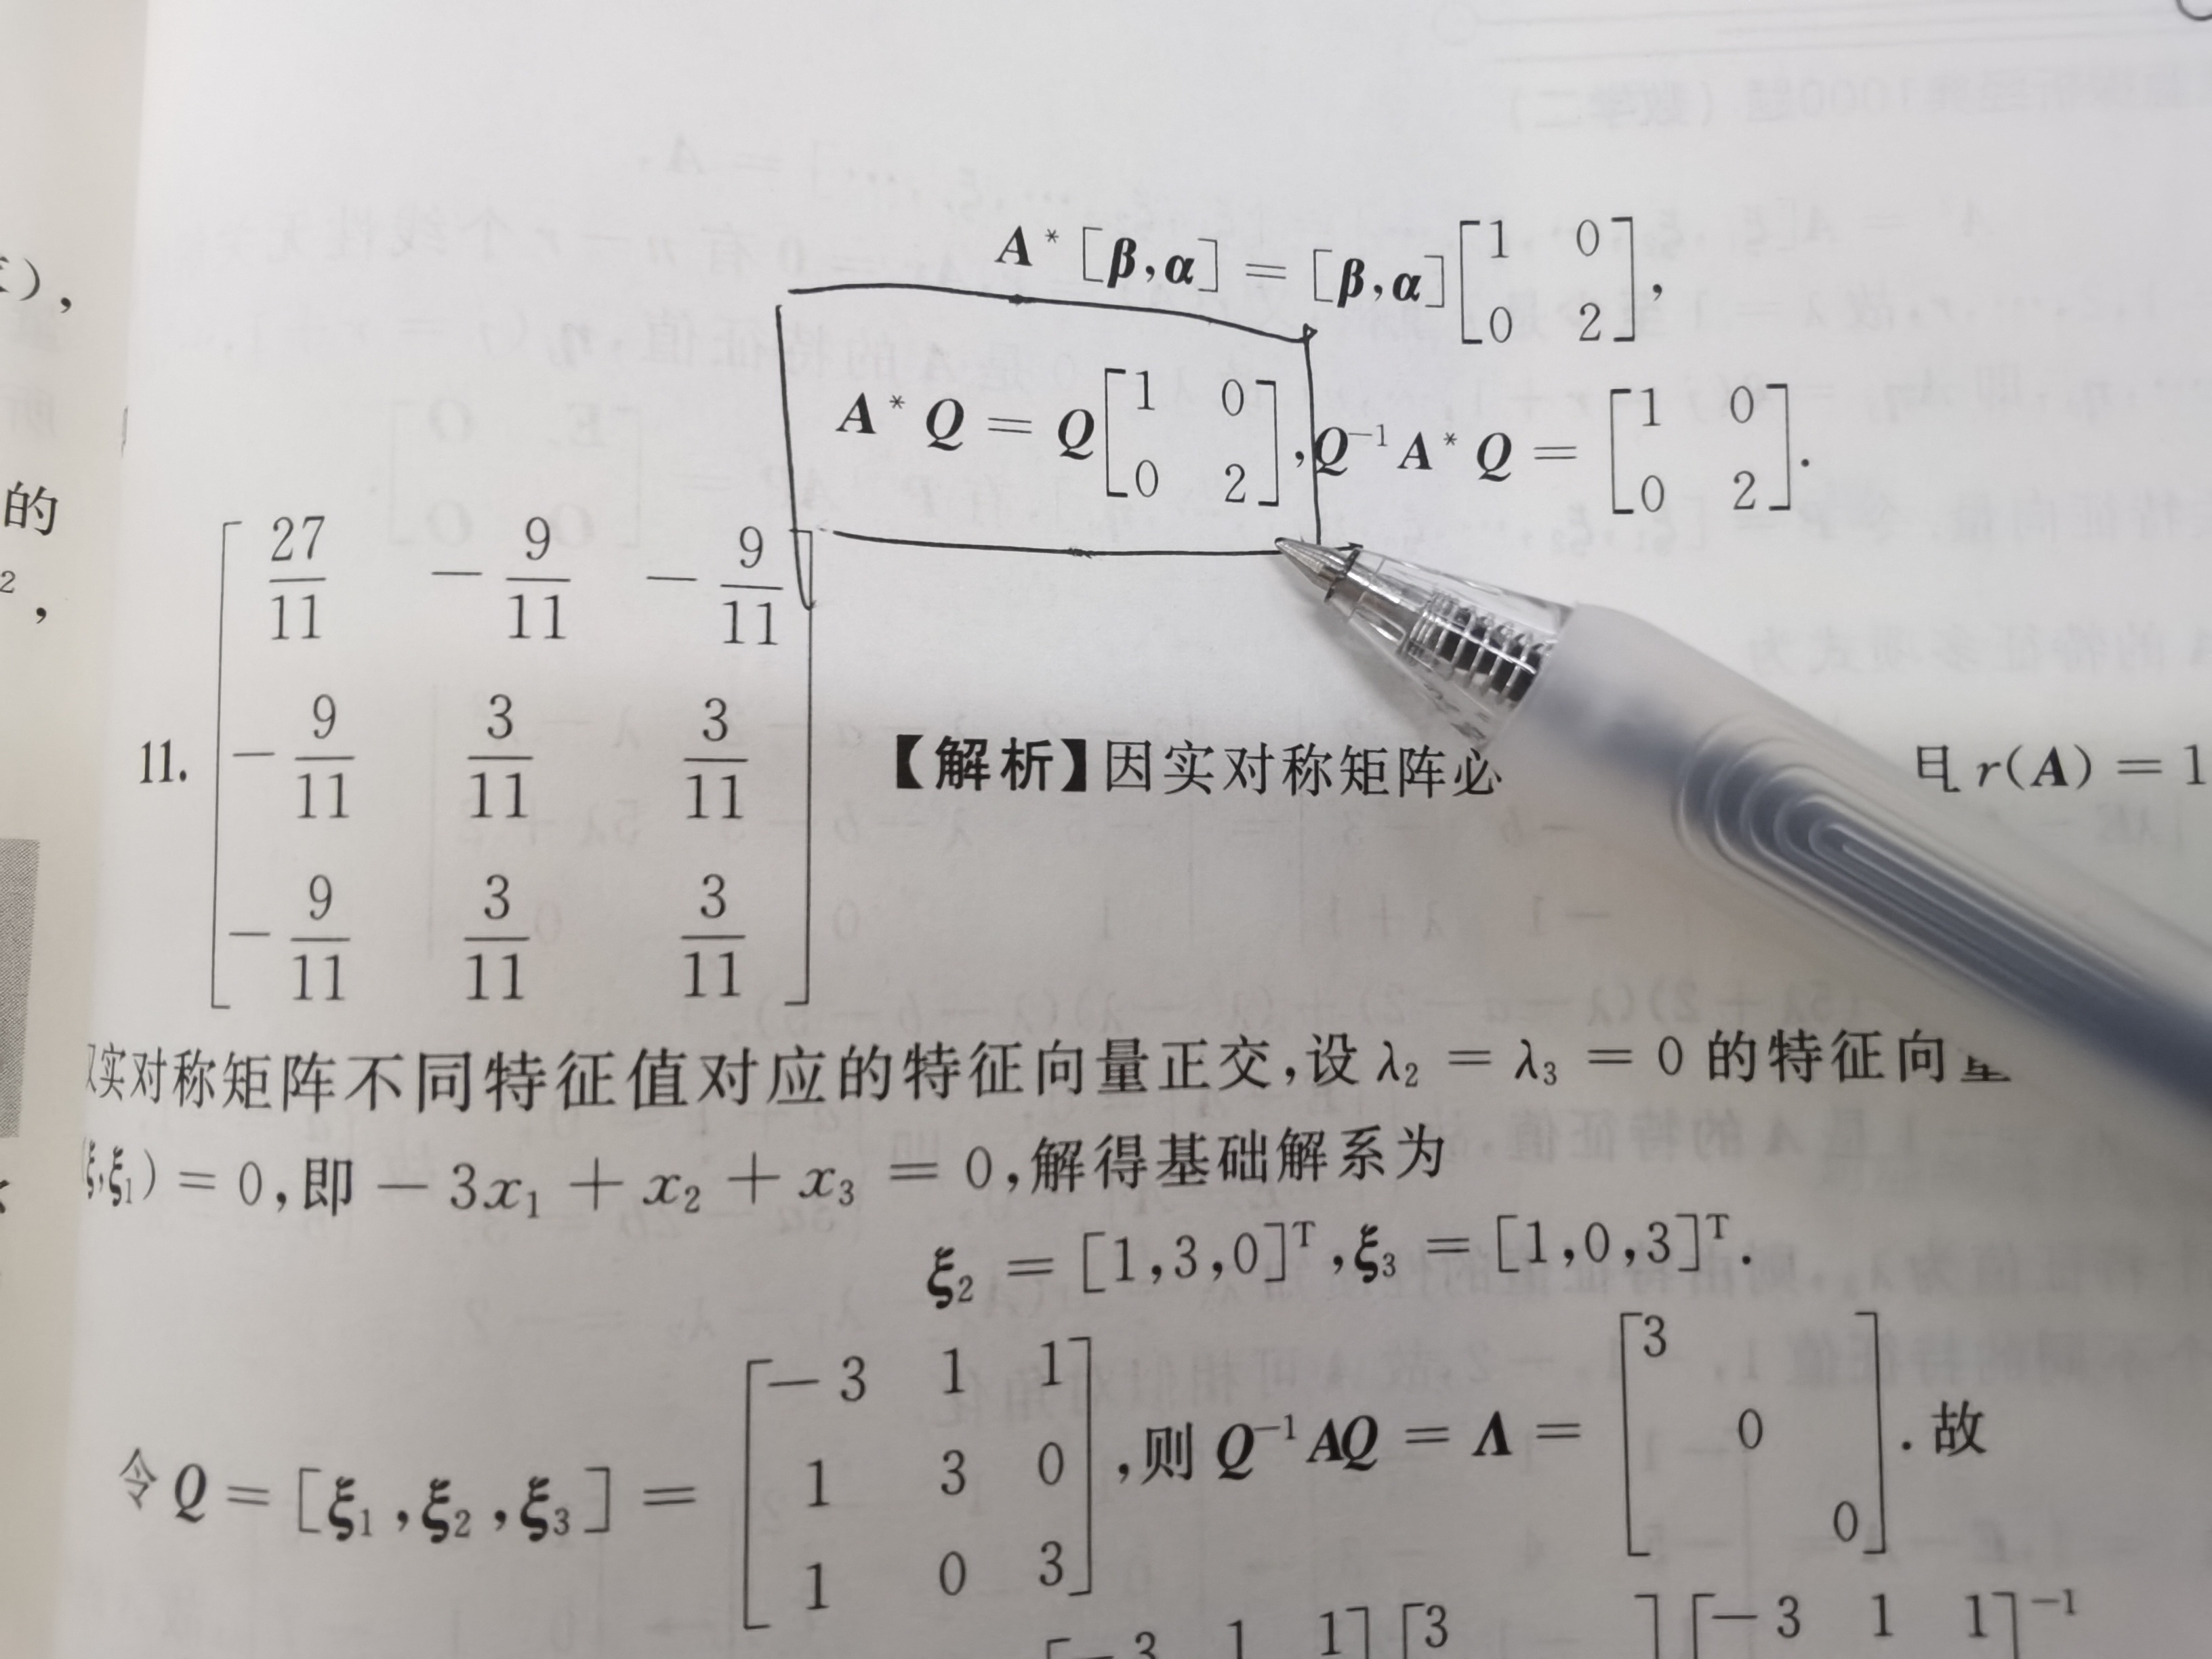 A* [β,α] = [β,α] [1 0; 0 2],
A* Q = Q [1 0; 0 2], Q⁻¹ A* Q = [1 0; 0 2].
的
2,
11. [27/11 −9/11 −9/11; −9/11 3/11 3/11; −9/11 3/11 3/11] 【解析】因实对称矩阵必 且 r(A) = 1
实对称矩阵不同特征值对应的特征向量正交,设 λ₂ = λ₃ = 0 的特征向
(ξ,ξ₁) = 0,即 −3x₁ + x₂ + x₃ = 0,解得基础解系为
ξ₂ = [1,3,0]ᵀ,ξ₃ = [1,0,3]ᵀ.
令 Q = [ξ₁,ξ₂,ξ₃] = [−3 1 1; 1 3 0; 1 0 3],则 Q⁻¹AQ = Λ = [3; 0; 0].故
[−3 1 1] [3 ] [−3 1 1]⁻¹